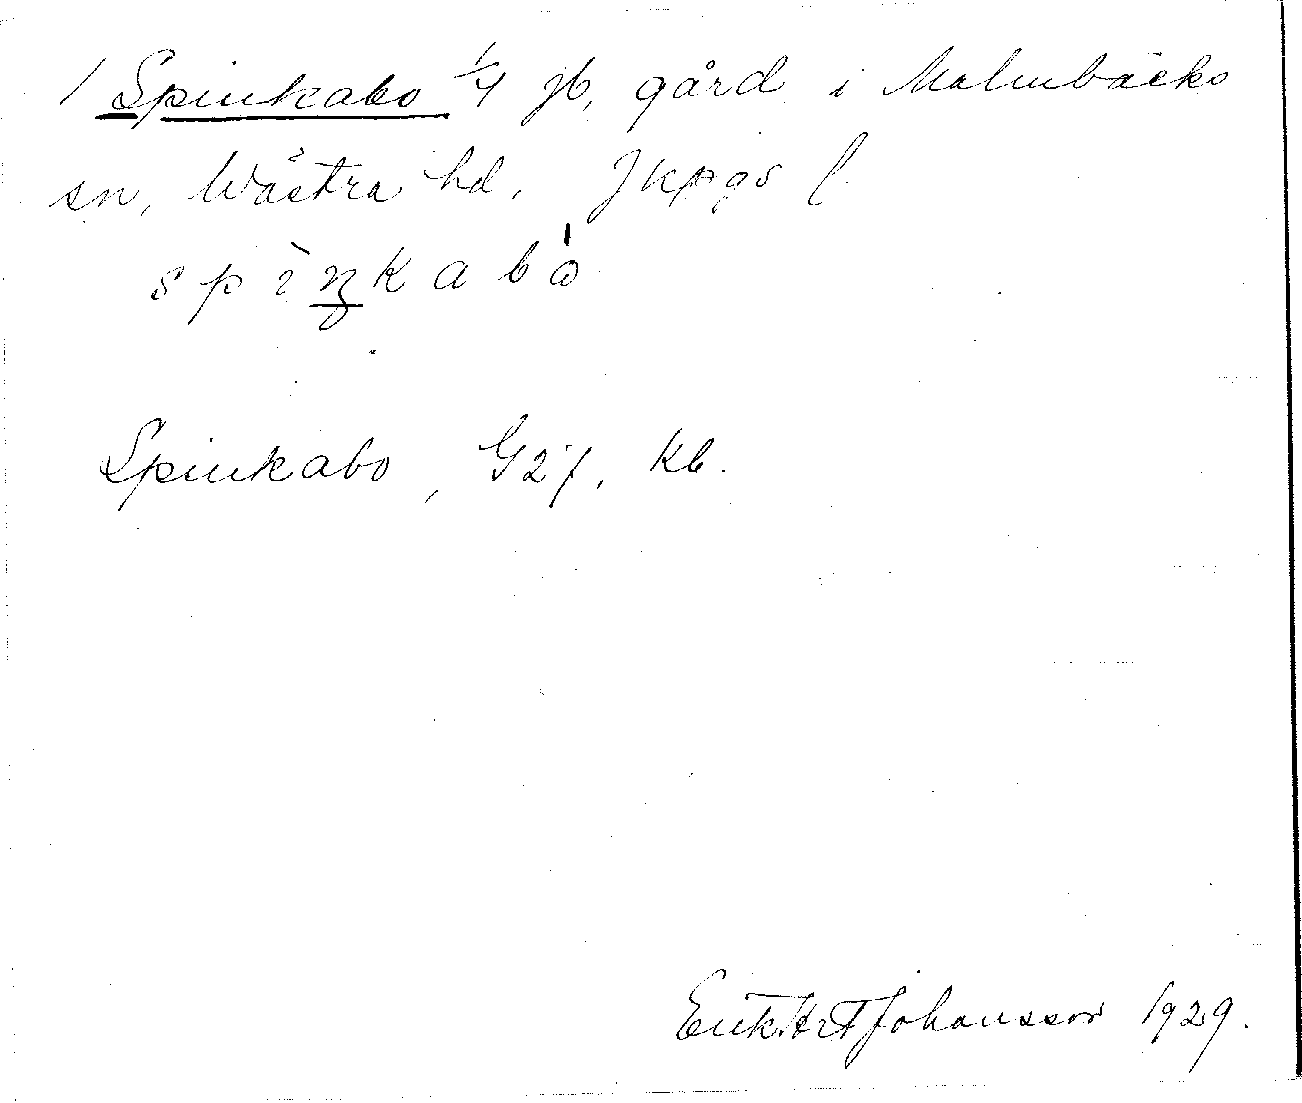 1 Spinkabo 1/4 jb. gård i Malmbäcks
sn, Wästra hd, Jkpgs l
spìŋkabó
Spinkabo, G27, Kb.
Erik Johansson 1929.